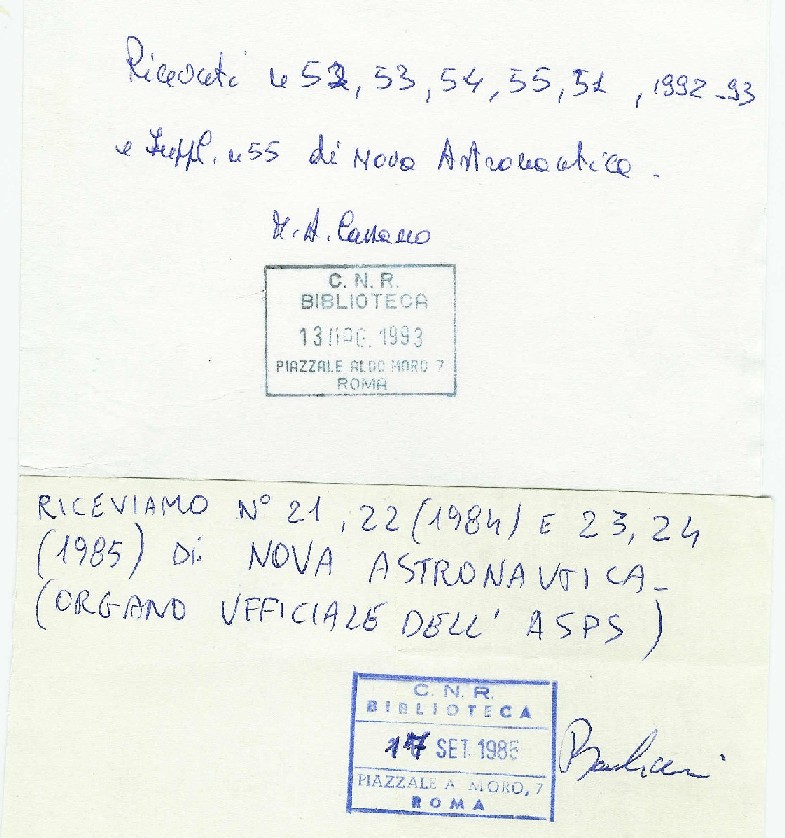 Ricevuti n 52, 53, 54, 55, 51, 1992-93
e Suppl. n 55 di Nova Astronautica.
C. N. R.
BIBLIOTECA
13 1993
PIAZZALE ALDO MORO 7
ROMA
RICEVIAMO N° 21, 22 (1984) E 23, 24
(1985) Di NOVA ASTRONAUTICA-
(ORGANO UFFICIALE DELL' ASPS)
C. N. R.
BIBLIOTECA
17 SET. 1985
PIAZZALE A. MORO, 7
ROMA